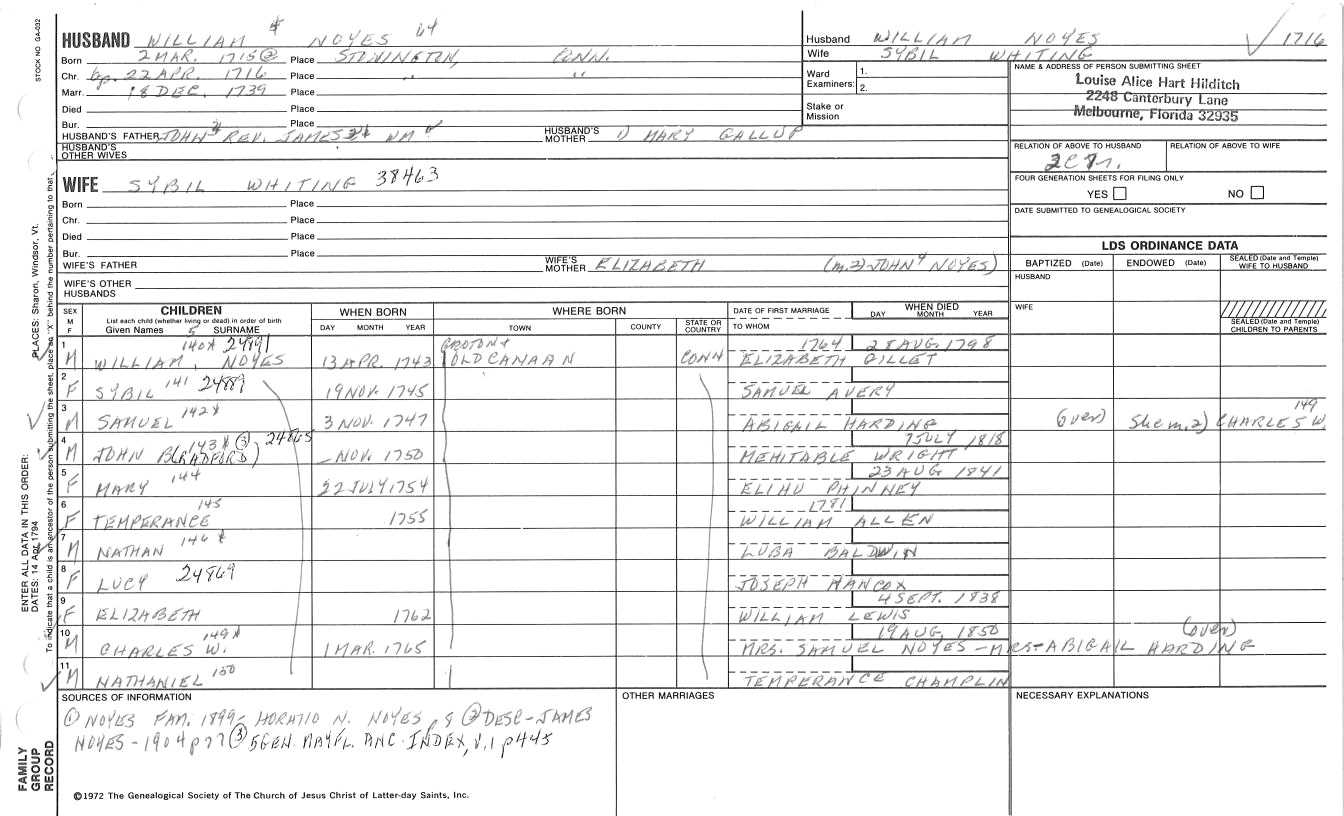 STOCK NO. GA-032
PLACES: Sharon, Windsor, Vt.
ENTER ALL DATA IN THIS ORDER:
DATES: 14 Apr 1794
To indicate that a child is an ancestor of the person submitting the sheet, place an "X" behind the number pertaining to that
FAMILY GROUP RECORD
HUSBAND WILLIAM 4 NOYES 64
Born 2 MAR. 1715@ Place STONINGTON, CONN.
Chr. bp. 22 APR. 1716 Place " "
Marr. 18 DEC. 1739 Place
Died Place
Bur. Place
HUSBAND'S FATHER JOHN3 REV. JAMES2 WM HUSBAND'S MOTHER 1) MARY GALLUP
HUSBAND'S OTHER WIVES
WIFE SYBIL WHITING 38463
Born Place
Chr. Place
Died Place
Bur. Place
WIFE'S FATHER WIFE'S MOTHER ELIZABETH (m.2) JOHN4 NOYES)
WIFE'S OTHER HUSBANDS
Husband WILLIAM NOYES 1716
Wife SYBIL WHITING
Ward Examiners: 1. 2.
Stake or Mission
NAME & ADDRESS OF PERSON SUBMITTING SHEET
Louise Alice Hart Hilditch
2248 Canterbury Lane
Melbourne, Florida 32935
RELATION OF ABOVE TO HUSBAND RELATION OF ABOVE TO WIFE
FOUR GENERATION SHEETS FOR FILING ONLY
YES NO
DATE SUBMITTED TO GENEALOGICAL SOCIETY
LDS ORDINANCE DATA
BAPTIZED (Date) ENDOWED (Date) SEALED (Date and Temple) WIFE TO HUSBAND
HUSBAND
WIFE
SEALED (Date and Temple) CHILDREN TO PARENTS
SEX M F CHILDREN List each child (whether living or dead) in order of birth Given Names 5 SURNAME WHEN BORN DAY MONTH YEAR WHERE BORN TOWN COUNTY STATE OR COUNTRY DATE OF FIRST MARRIAGE TO WHOM WHEN DIED DAY MONTH YEAR
1 140* 24891 GROTON & 1764 28 AUG. 1798
M WILLIAM, NOYES 13 APR. 1743 OLD CANAAN CONN ELIZABETH GILLET
2 141 24889
F SYBIL 19 NOV. 1745 SAMUEL AVERY
3 142* 149
M SAMUEL 3 NOV. 1747 ABIGAIL HARDING (over) She m. 2) CHARLES W.
4 143* (3) 24865 7 JULY 1818
M JOHN B(RADFORD) _ NOV. 1750 MEHITABLE WRIGHT
5 144 23 AUG 1841
F MARY 22 JULY 1754 ELIHU PHINNEY
6 145 1781
F TEMPERANCE 1755 WILLIAM ALLEN
7 146*
M NATHAN LUBA BALDWIN
8 24969
F LUCY JOSEPH HANCOX
9 4 SEPT. 1838
F ELIZABETH 1762 WILLIAM LEWIS
10 149* 19 AUG. 1850 (over)
M CHARLES W. 1 MAR. 1765 MRS. SAMUEL NOYES - MRS-ABIGAIL HARDING
11 150
M NATHANIEL TEMPERANCE CHAMPLIN
SOURCES OF INFORMATION OTHER MARRIAGES NECESSARY EXPLANATIONS
(1) NOYES FAM. 1899- HORATIO N. NOYES, p 8 (2) DESC-JAMES
NOYES-1904 p 77 (3) 5GEN. MAYFL. ANC. INDEX, V.1 p445
©1972 The Genealogical Society of The Church of Jesus Christ of Latter-day Saints, Inc.